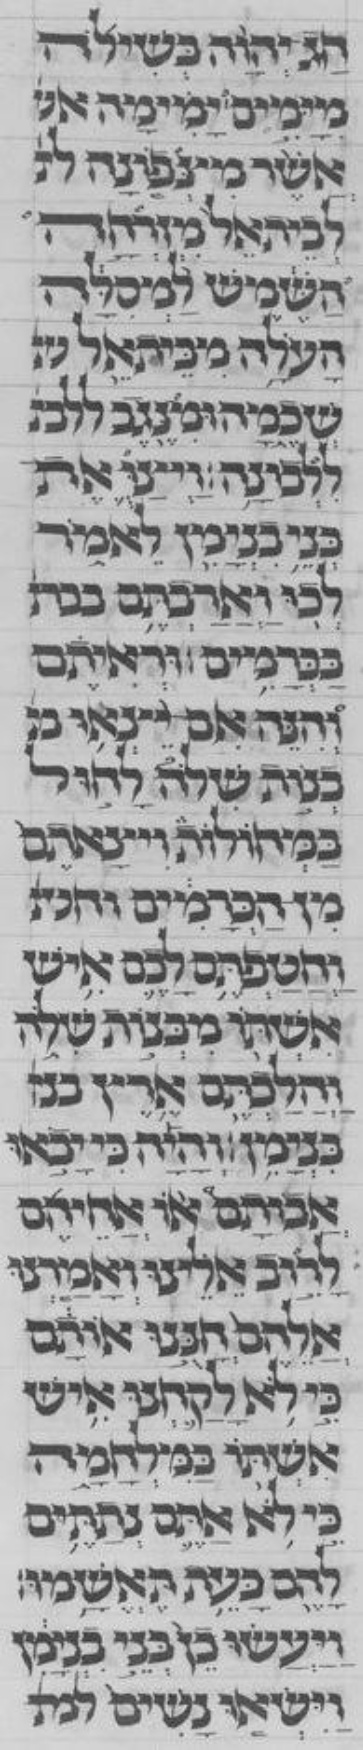 חַג־יְהוָה בְּשִׁילֹה
מִיָּמִים יָמִימָה אש
אֲשֶׁר מִצְּפוֹנָה לב
לְבֵיתְאֵל מִזְרְחָה
הַשֶּׁמֶשׁ לִמְסִלָּה
הָעֹלָה מִבֵּיתְאֵל ש
שְׁכֶמָה וּמִנֶּגֶב ללב
לִלְבוֹנָה׃ וַיְצַוּ אֶת
בְּנֵי בִנְיָמִן לֵאמֹר
לְכוּ וַאֲרַבְתֶּם בכר
בַּכְּרָמִים׃ וּרְאִיתֶם
וְהִנֵּה אִם יֵצְאוּ
בְנוֹת שִׁלֹה לָחוּל
בַּמְּחֹלוֹת וִיצָאתֶם
מִן־הַכְּרָמִים וחט
וַחֲטַפְתֶּם לָכֶם אִישׁ
אִשְׁתּוֹ מִבְּנוֹת שִׁלֹה
וַהֲלַכְתֶּם אֶרֶץ בני
בִּנְיָמִן׃ וְהָיָה כִּי יָבֹאוּ
אֲבוֹתָם אוֹ אֲחֵיהֶם
לָרוֹב אֵלֵינוּ וְאָמַרְנוּ
אֲלֵהֶם חָנֻּנוּ אוֹתָם
כִּי לֹא לָקַחְנוּ אִישׁ
אִשְׁתּוֹ בַּמִּלְחָמָה
כִּי לֹא אַתֶּם נְתַתֶּם
לָהֶם כָּעֵת תֶּאְשָׁמוּ׃
וַיַּעֲשׂוּ כֵן בְּנֵי בִנְיָמִן
וַיִּשְׂאוּ נָשִׁים למס